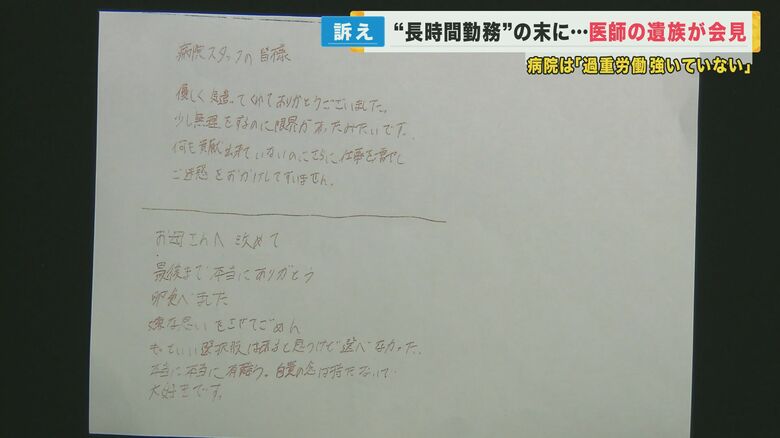 訴え
“長時間勤務”の末に…医師の遺族が会見
病院は「過重労働強いていない」
病院スタッフの皆様
優しく気遣ってくれてありがとうございました。
少し無理をするのに限界があったみたいです。
何も貢献出来ていないのにさらに仕事を増やし
ご迷惑をおかけしてすいません。
お母さんへ 改めて
最後まで本当にありがとう
卵食べました
嫌な思いをさせてごめん
もっといい選択肢はあると思うけど選べなかった。
本当に本当に有難う。自責の念は持たないで
大好きです。